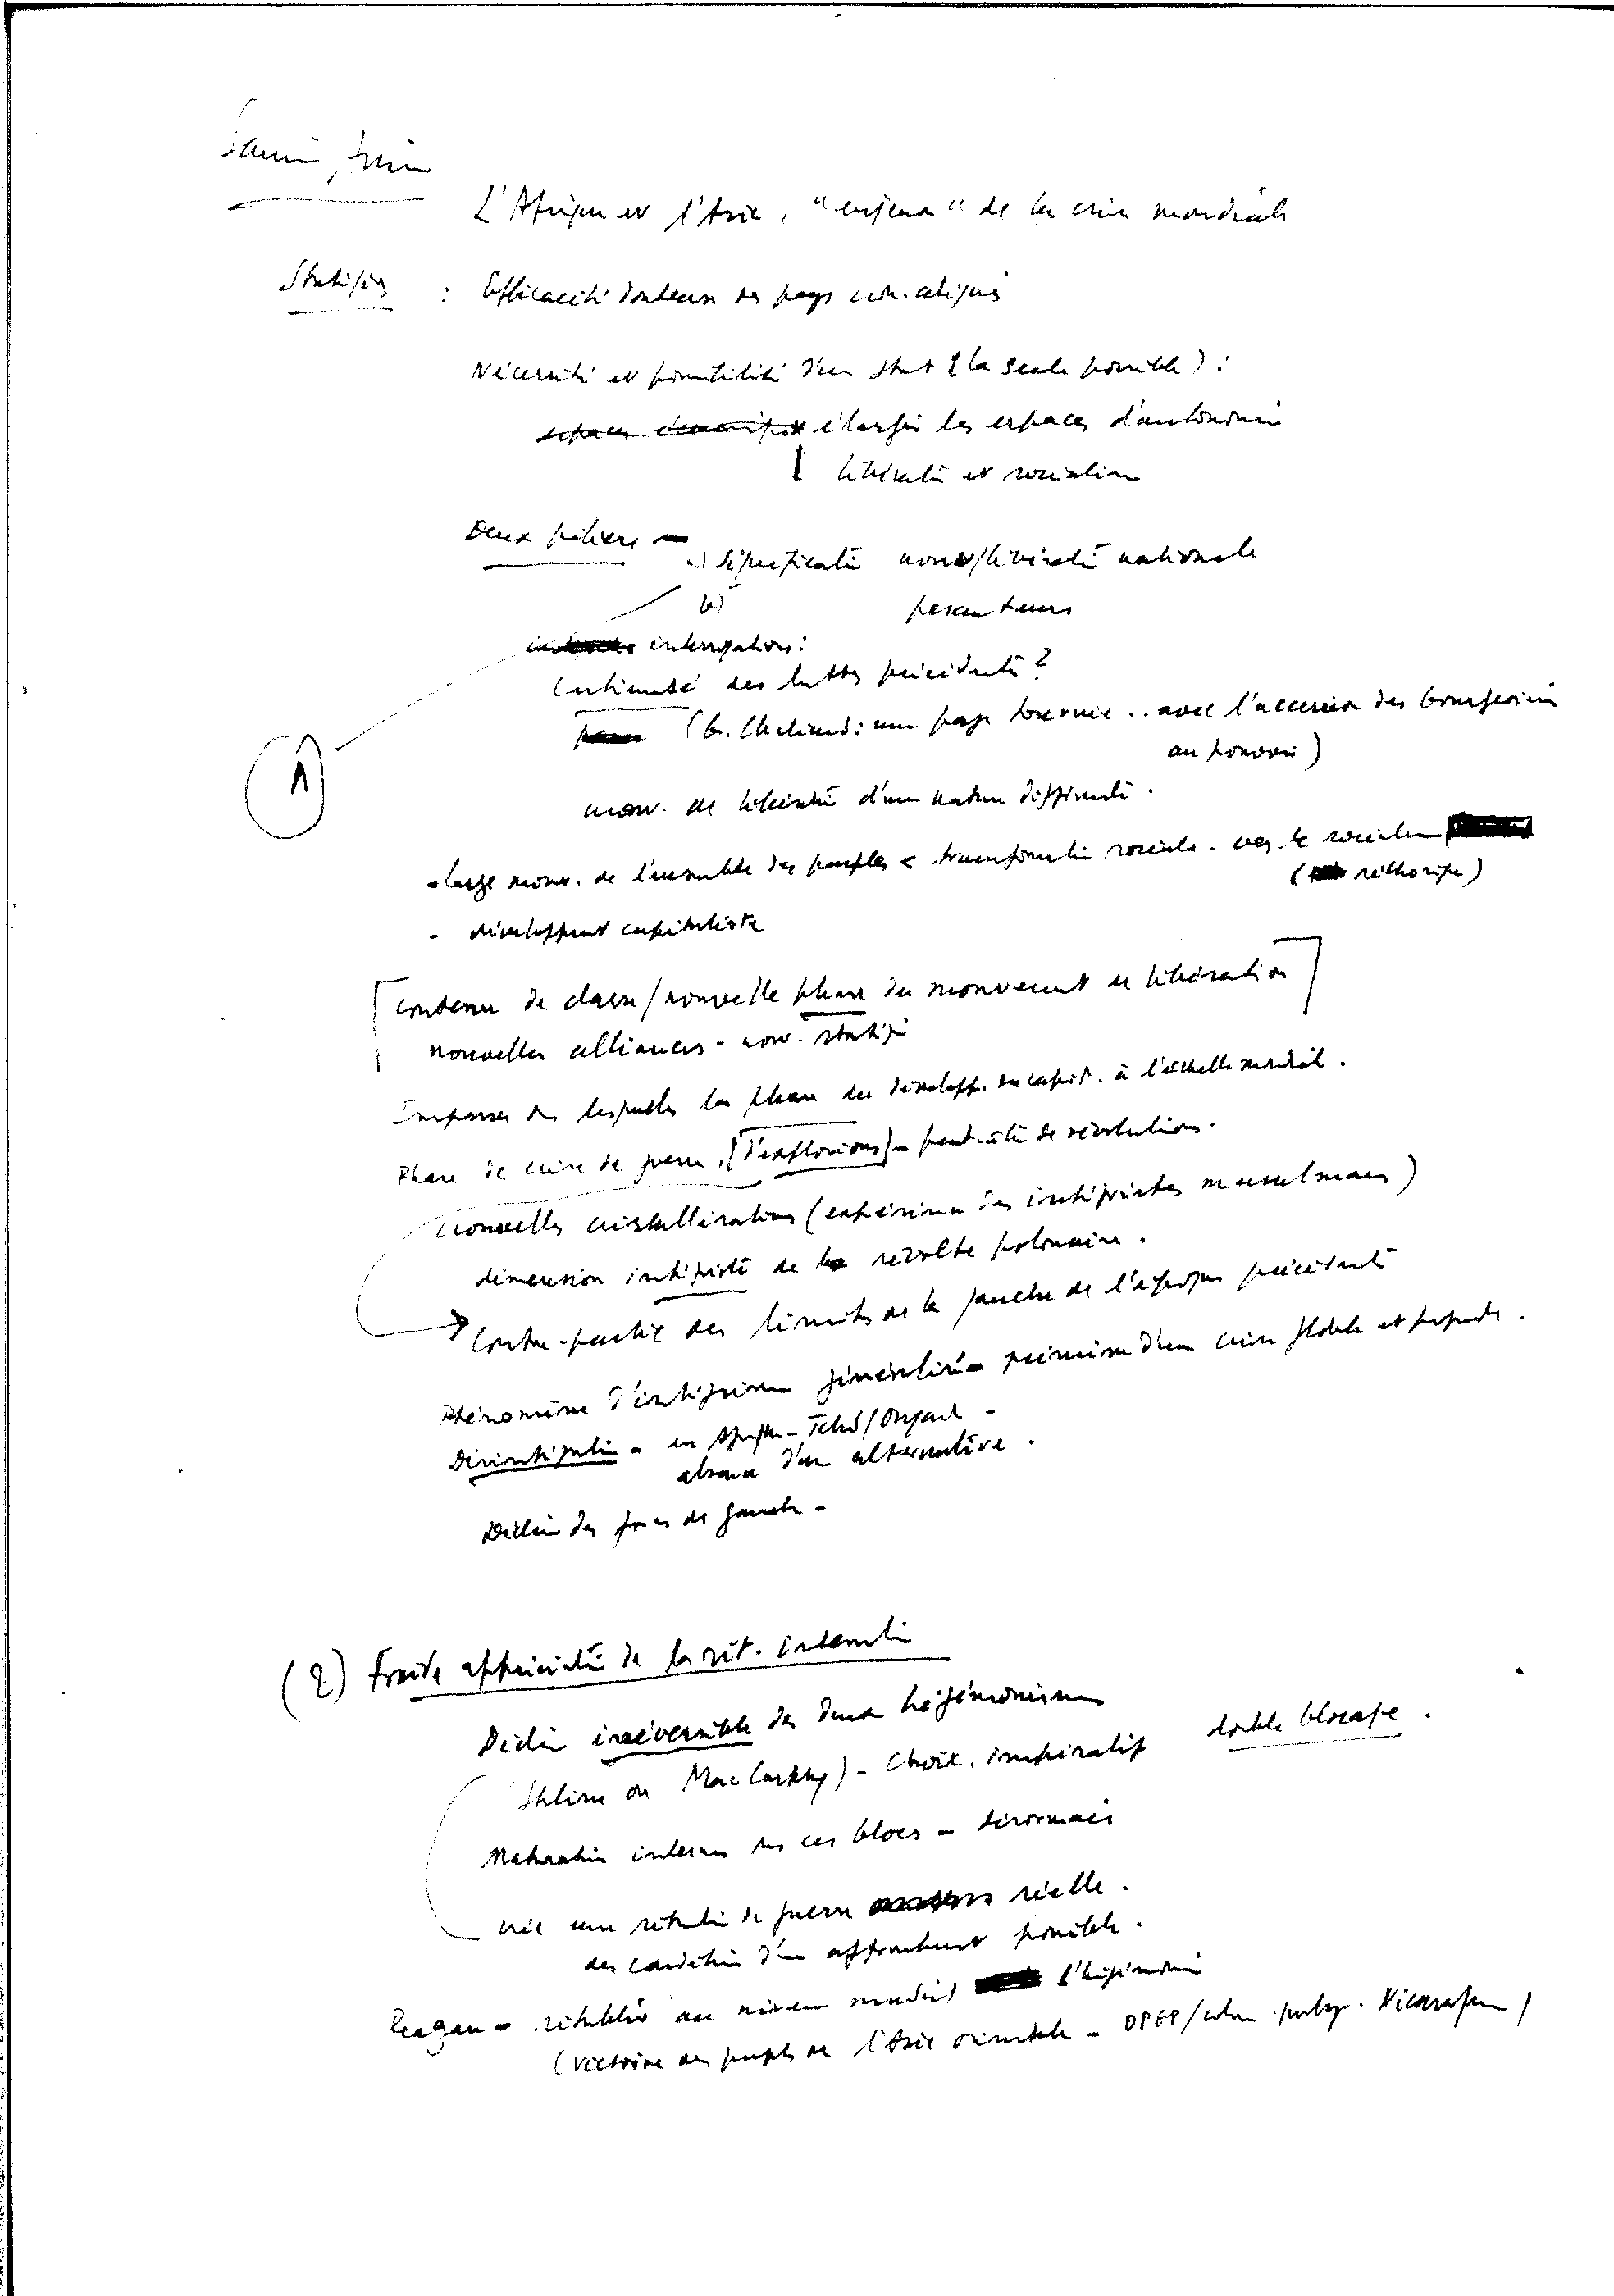 Samir Amin
L'Afrique et l'Asie, "enjeux" de la crise mondiale
Stratégies : Efficacité douteuse des pays non-alignés
Nécessité et possibilité d'une strat (la seule possible) :
élargir les espaces d'autonomie
libération et socialisme
Deux piliers —
a) signification mouv/libération nationale
b) pesanteurs
interrogations :
Continuité des luttes précédentes ?
(G. Chaliand : une page tournée .. avec l'accession des bourgeoisies
au pouvoir)
1
mouv. de libération d'une nature différente.
- large mouv. de l'ensemble des peuples < transformation sociale. vers le socialisme
(réthorique)
- développement capitaliste
contenu de classe / nouvelle phase du mouvement de libération
nouvelles alliances - nouv. stratégie
Impasses dans lesquelles la phase du développ. du capit. à l'échelle mondiale.
Phase de crise de guerre, [d'explosions] - peut-être de révolutions.
nouvelles cristallisations (expérience des intégristes musulmans)
dimension intégriste de la révolte polonaise.
Contre-partie des limites de la gauche de l'époque précédente
Phénomène d'intégrisme généralisé - prémisse d'une crise globale et profonde.
Désintégration - en Afrique - Tchad/Ouganda -
absence d'une alternative.
Déclin des forces de gauche -
(2) Froide appréciation de la sit. internat.
Déclin irréversible des deux hégémonismes
Staline ou MacCarthy) - Choix. impératif double blocage.
Maturation interne dans ces blocs - désormais
crée une situation de guerre réelle.
des conditions d'un affrontement possible.
Reagan - rétablir au niveau mondial l'hégémonie
(victoire des peuples de l'Asie orientale - OPEP / Nicaragua)